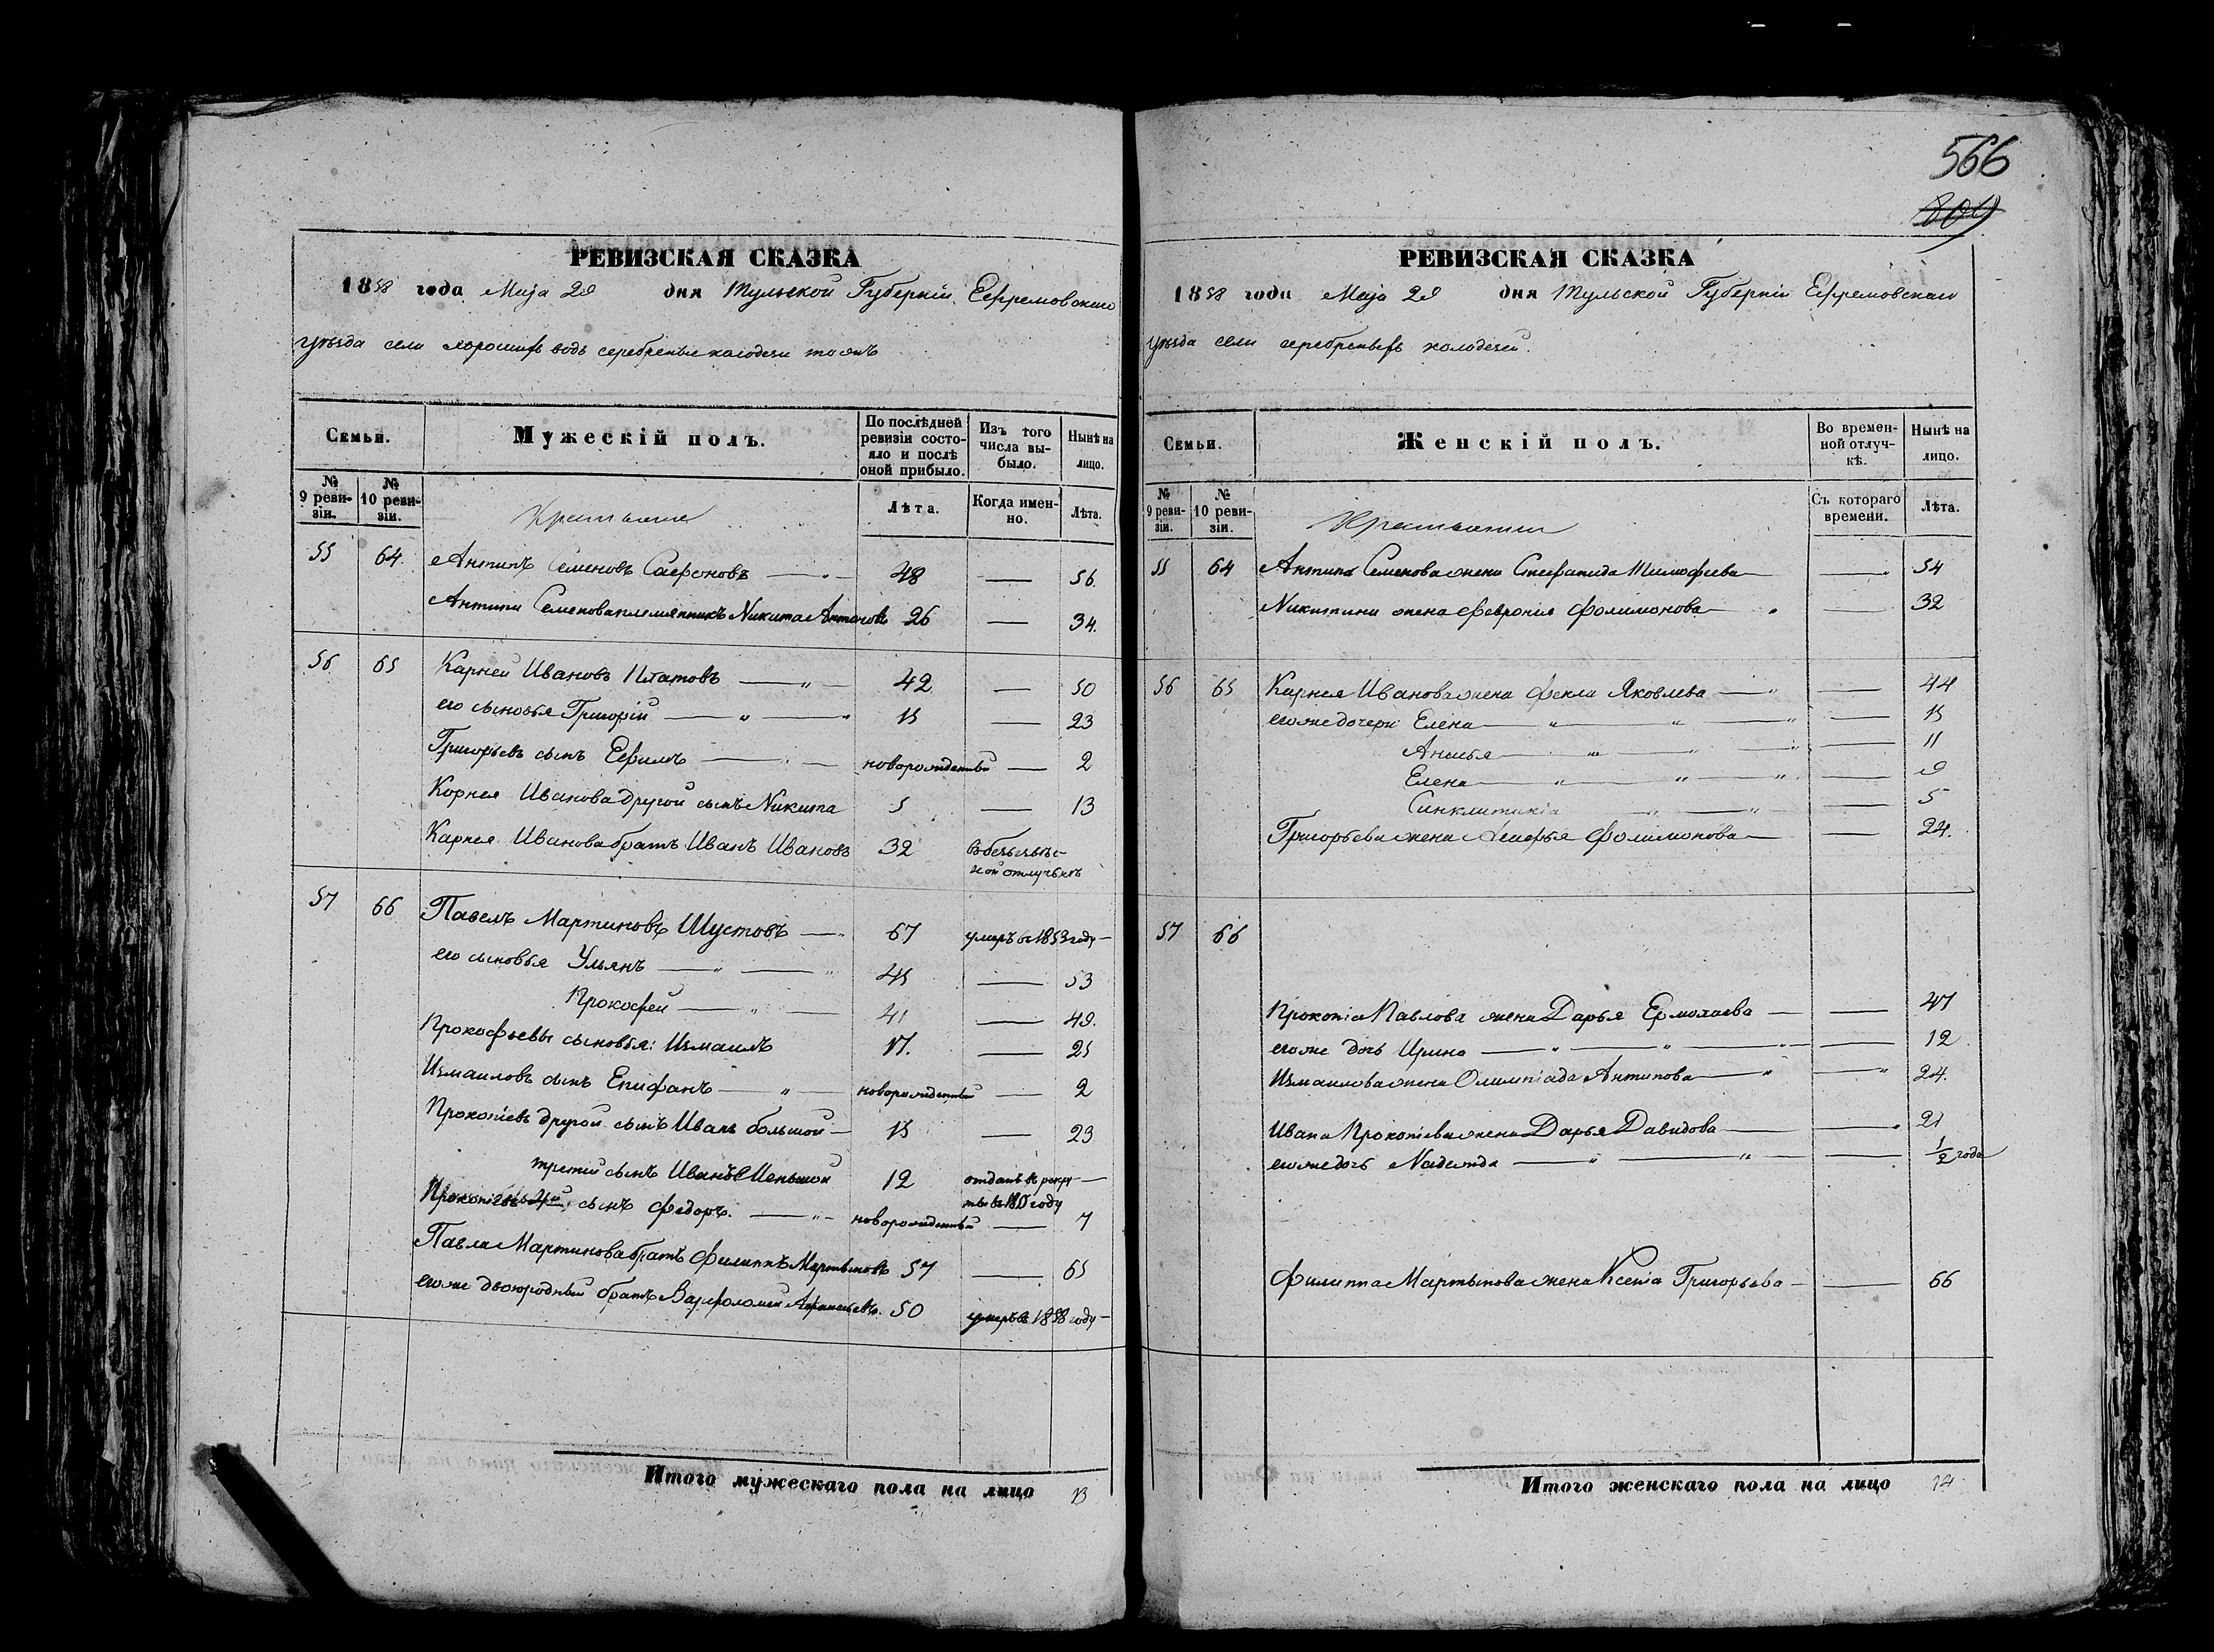 566
809
РЕВИЗСКАЯ СКАЗКА
1858 года Маія 29 дня Тульской Губерніи Ефремовскаго
уѣзда села хорошихъ водъ серебреные колодези тожъ
Семьи.
Мужескій полъ.
По послѣдней ревизіи состояло и послѣ оной прибыло.
Изъ того числа выбыло.
Нынѣ на лицо.
№ 9 ревизіи.
№ 10 ревизіи.
Крестьяне
Лѣта.
Когда именно.
Лѣта.
55 64. Антипъ Семеновъ Сафоновъ 48 — 56.
Антипа Семенова племянникъ Никита Антоновъ 26 — 34.
56 65 Карней Ивановъ Платовъ — „ — 42 — 50
его сыновья Григорій — „ — „ 15 — 23
Григорьевъ сынъ Ефимъ — „ — новорожденный — 2
Корнея Иванова другой сынъ Никита 5 — 13
Карнея Иванова братъ Иванъ Ивановъ 32 въ безъизвѣстной отлучькѣ
57 66 Павелъ Мартиновъ Шустовъ — „ 67 умеръ въ 1853 году —
его сыновья Ульянъ — „ — „ 45 — 53
Прокофей — „ — 41 — 49.
Прокофьевы сыновья: Измаилъ 17. — 25
Измаиловъ сынъ Епифанъ — „ — новорожденный — 2
Прокопіевъ другой сынъ Иванъ большой — 15 — 23
третій сынъ Иванъ Меньшой 12 отданъ въ рекруты въ году
Прокопіевъ 4й сынъ Федоръ. — „ — новорожденный — 7
Павла Мартинова братъ Филиппъ Мартыновъ 57 — 65
его же двоюродный братъ Варфоломей Афанасьевъ. 50 умеръ въ 1858 году —
Итого мужескаго пола на лицо 13
РЕВИЗСКАЯ СКАЗКА
1858 года Маія 29 дня Тульской Губерніи Ефремовскаго
уѣзда села серебреныхъ колодезей.
Семьи.
Женскій полъ.
Во временной отлучкѣ.
Нынѣ на лицо.
№ 9 ревизіи.
№ 10 ревизіи.
Крестьянки
Съ котораго времени.
Лѣта.
55 64 Антипа Семенова жена Степанида Тимофеева — 54
Никитина жена Феврония Филимонова — 32
56 65 Карнея Иванова жена Фекла Яковлева — „ — 44
его же дочери Елена — „ — „ — „ — 15
Анисья — „ — „ — „ — 11
Елена — „ — „ — „ — 9
Синклитикія — „ — „ — 5
Григорьева жена Филимонова — 24.
57 66
Прокопіа Павлова жена Дарья Ермолаева — 47
его же дочь Ирина — „ — „ — „ — 12
Измаилова жена Олимпіада Антипова — „ — 24.
Ивана Прокопіева жена Дарья Давидова — 21
его же дочь Надежда — „ — „ — 1/2 года
Филиппа Мартынова жена Ксенія Григорьева — 66
Итого женскаго пола на лицо 14